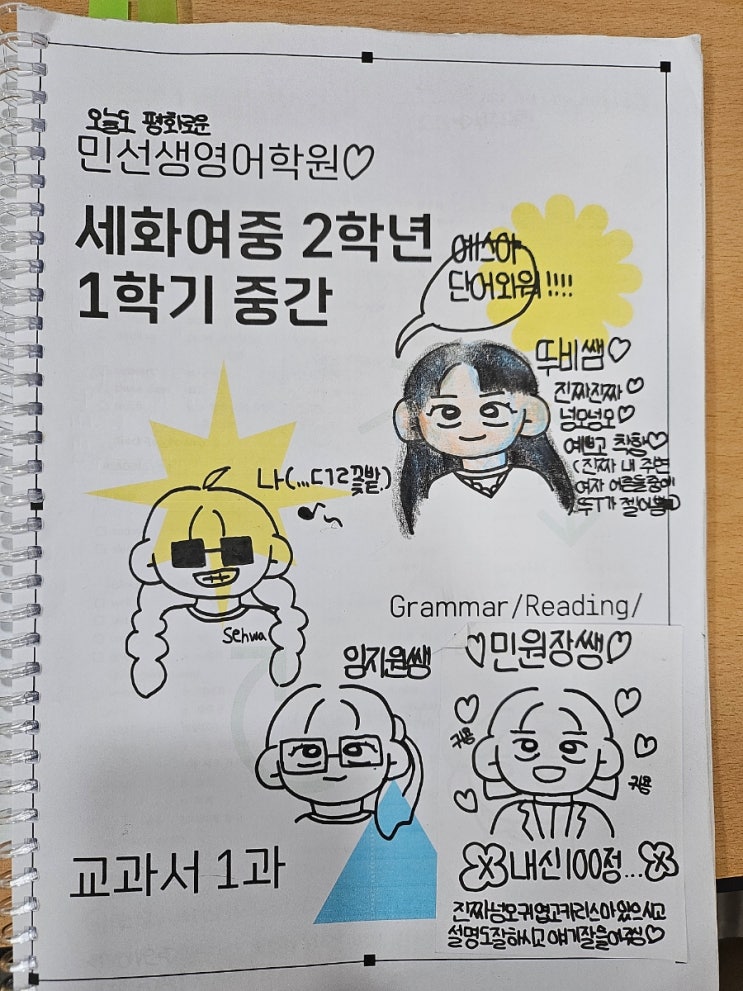 오늘도 평화로운
민선생영어학원♡
세화여중 2학년
1학기 중간
예스야
단어외워!!!!
뚜비쌤♡
진짜진짜♡
넘모넘모♡
예쁘고 착함♡
(진짜 내 주변
여자 어른들중에
뚜T가 젤이쁨
나(... 꽃밭.)
Sehwa
Grammar/Reading/
임지원쌩
♡민원장쌩♡
귀욤
귀욤
내신100점...
진짜넘모귀엽고카리스마있으시고
설명도잘하시고 얘기잘들어주심♡
교과서 1과